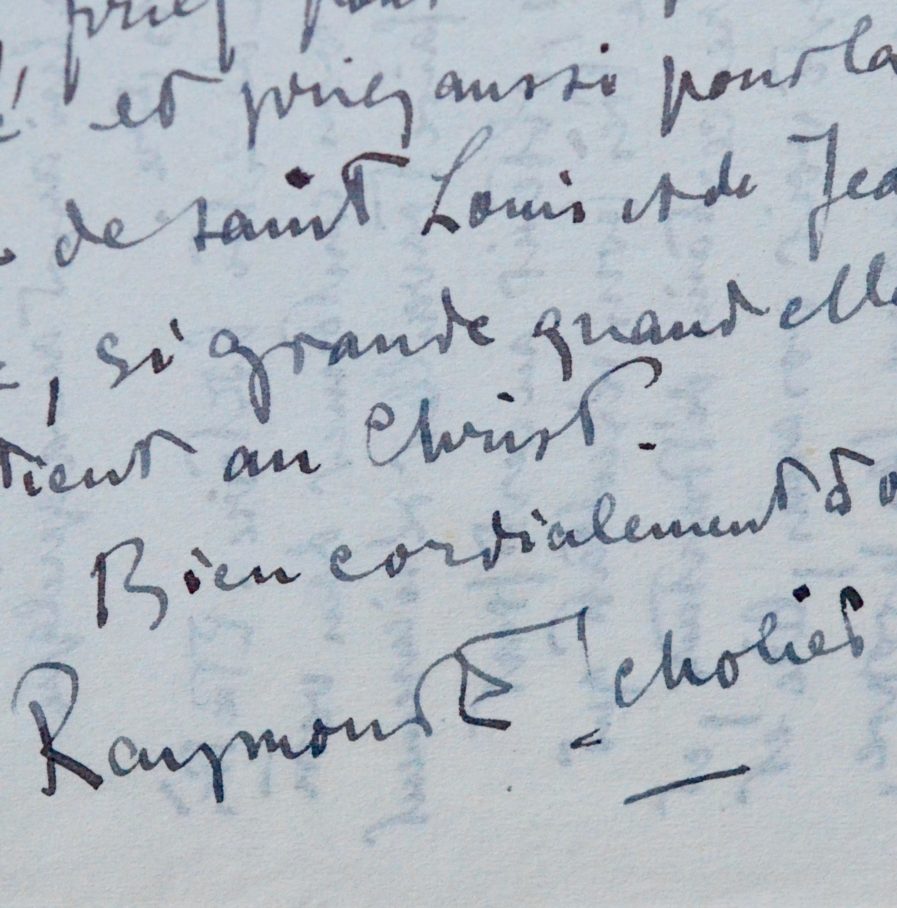 , priez pour
et priez aussi pour la
de saint Louis et de Jea
, si grande quand elle
tient au Christ.
Bien cordialement
Raymond Escholier